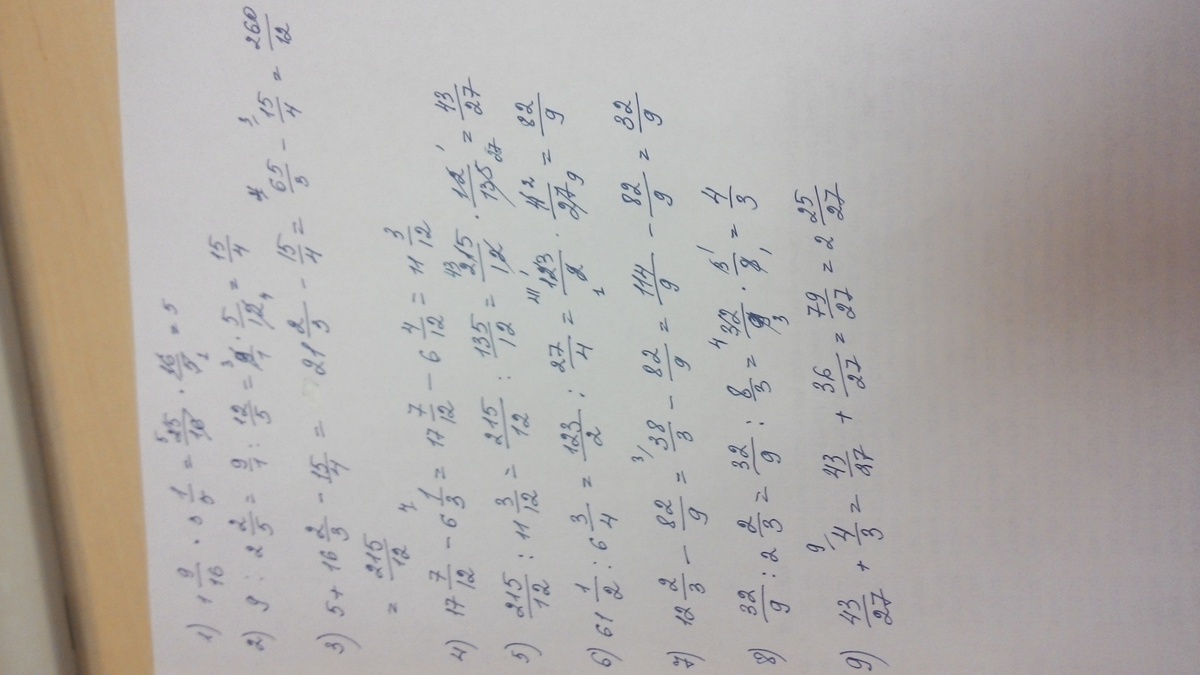 1) 1 9/16 · 3 1/5 = 25/16 · 16/5 = 5
2) 9 : 2 2/5 = 9/1 : 12/5 = 9/1 · 5/12 = 15/4
3) 5 + 16 2/3 - 15/4 = 21 2/3 - 15/4 = 65/3 - 15/4 = 260/12
= 215/12
4) 17 7/12 - 6 1/3 = 17 7/12 - 6 4/12 = 11 3/12
5) 215/12 : 11 3/12 = 215/12 : 135/12 = 215/12 · 12/135 = 43/27
6) 61 1/2 : 6 3/4 = 123/2 : 27/4 = 123/2 · 4/27 = 82/9
7) 12 2/3 - 82/9 = 38/3 - 82/9 = 114/9 - 82/9 = 32/9
8) 32/9 : 2 2/3 = 32/9 : 8/3 = 32/9 · 3/8 = 4/3
9) 43/27 + 4/3 = 43/27 + 36/27 = 79/27 = 2 25/27